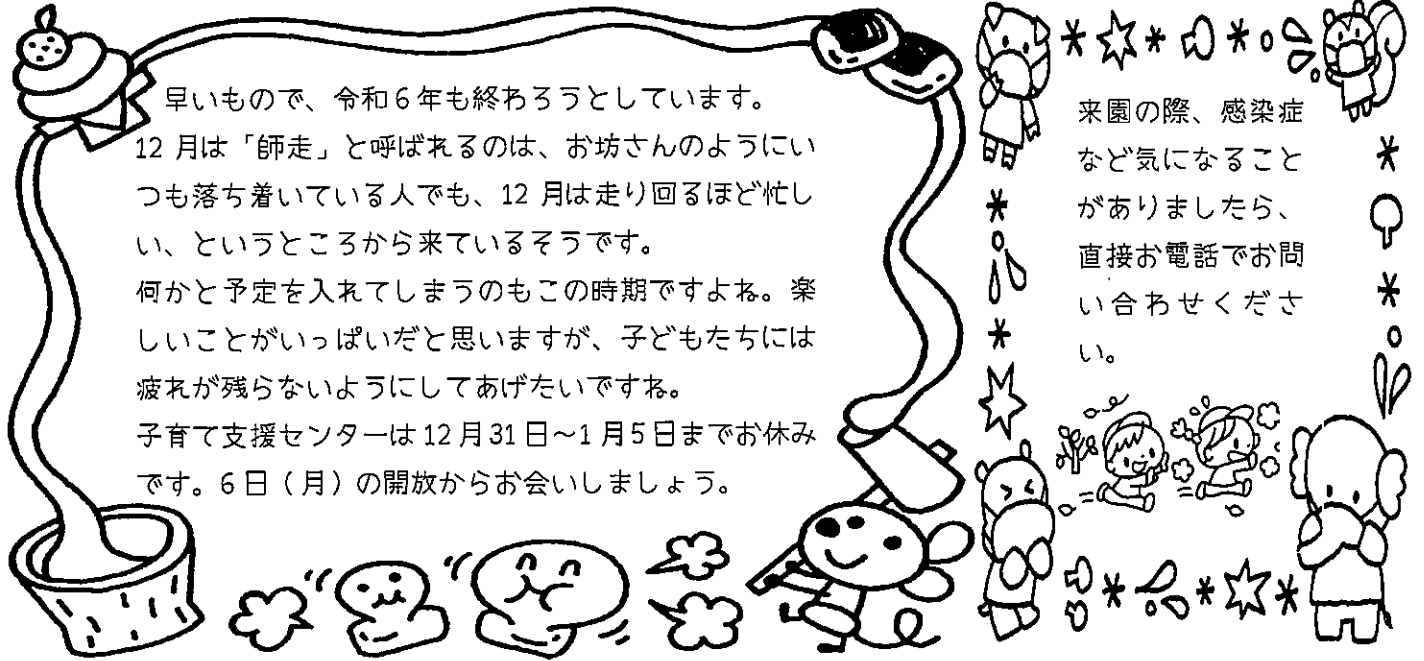 早いもので、令和6年も終わろうとしています。
12月は「師走」と呼ばれるのは、お坊さんのようにい
つも落ち着いている人でも、12月は走り回るほど忙し
い、というところから来ているそうです。
何かと予定を入れてしまうのもこの時期ですよね。楽
しいことがいっぱいだと思いますが、子どもたちには
疲れが残らないようにしてあげたいですね。
子育て支援センターは12月31日~1月5日までお休み
です。6日(月)の開放からお会いしましょう。
来園の際、感染症
など気になること
がありましたら、
直接お電話でお問
い合わせくださ
い。